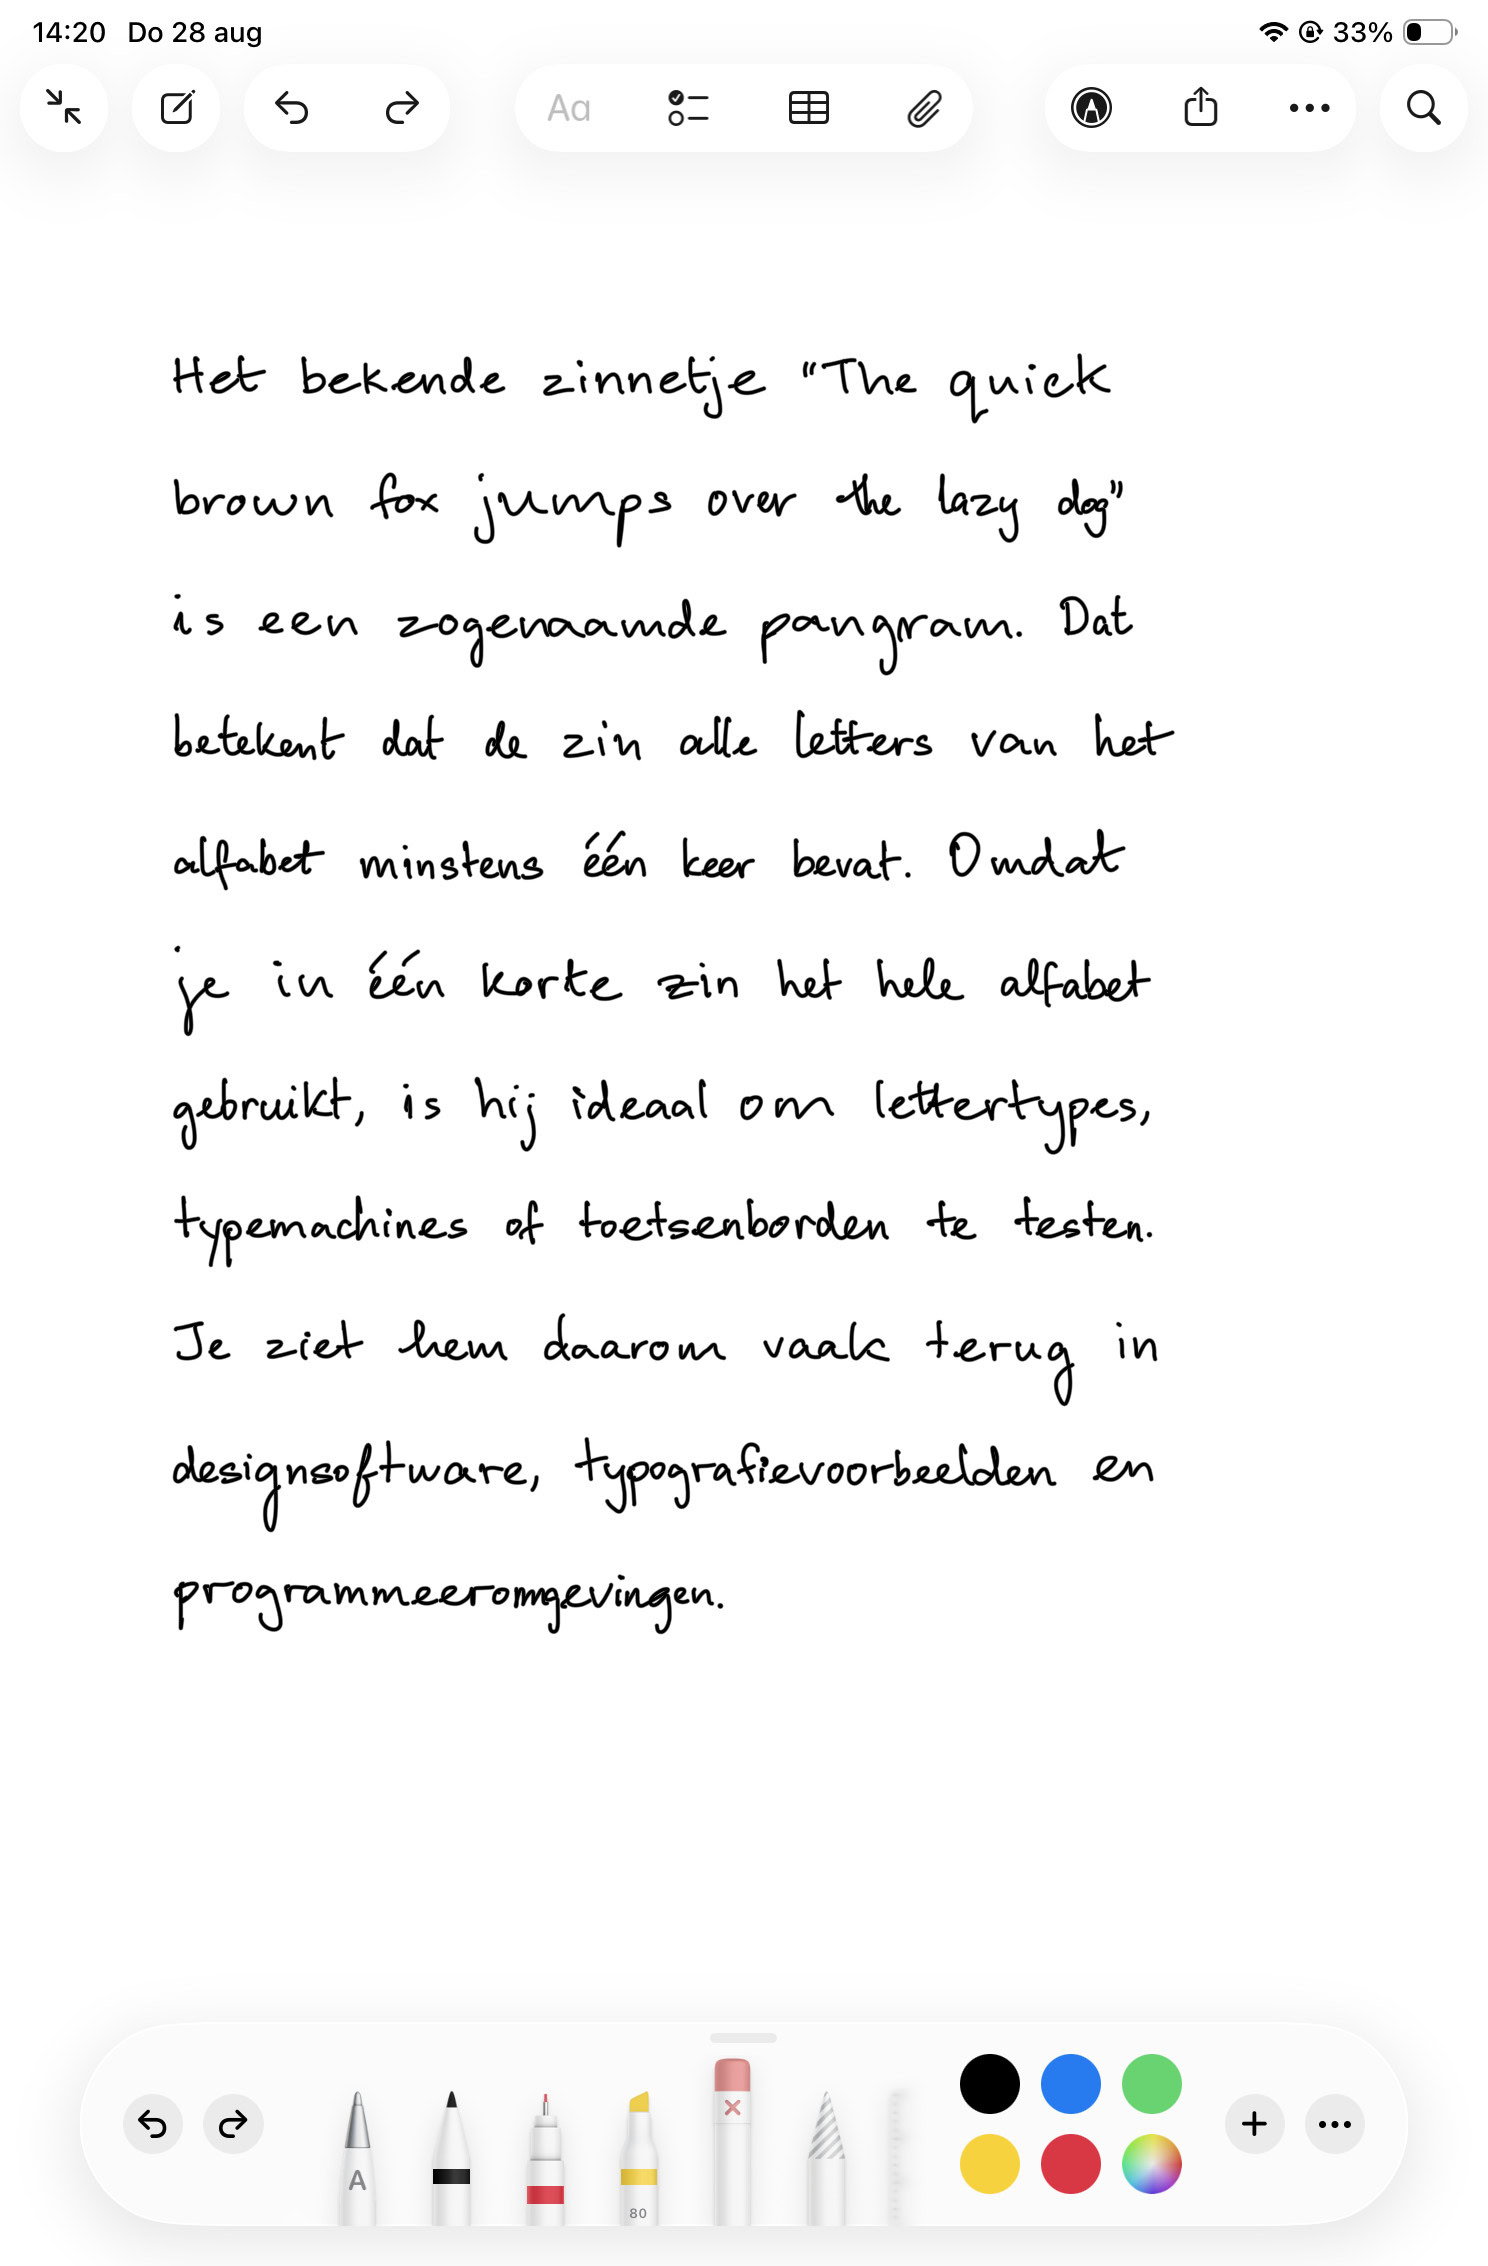 14:20 Do 28 aug 33%
Aa
Het bekende zinnetje "The quick
brown fox jumps over the lazy dog"
is een zogenaamde pangram. Dat
betekent dat de zin alle letters van het
alfabet minstens één keer bevat. Omdat
je in één korte zin het hele alfabet
gebruikt, is hij ideaal om lettertypes,
typemachines of toetsenborden te testen.
Je ziet hem daarom vaak terug in
designsoftware, typografievoorbeelden en
programmeeromgevingen.
A
80